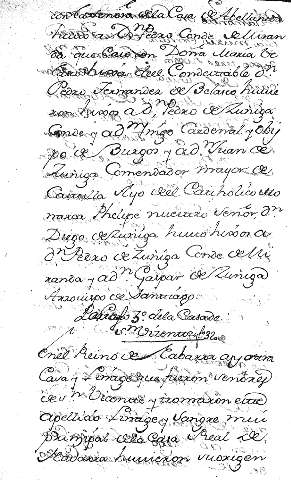 con la Senora de la Casa de Abellaneda
hubo a Dn Pedro Conde de Miran
da, que Casó con Doña Maria de
Velasco hija del Condestable Dn
Pedro Fernandez de Belasco hubie
ron hixos a dn Pedro de Zuñiga
Conde y a dn Inigo Cardenal y Obis
po de Burgos y a dn Juan de
Zuñiga Comendador maior de
Castilla Ayo del Catholico mo
narca Phelipe nuestro señor, dn
Diego de Zuñiga hubo hixos a
dn Pedro de Zuñiga Conde de Mi
randa y a dn Gaspar de Zuñiga
Arzovispo de Santiago.
de la Casa de
Sn Vizente
En el Reino de Nabarra ay otra
Casa y Linage que fueron señores
de Sn Vizente y tomaron este
apellido Linage y sangre mui
principal de la Casa Real de
Nabarra hubieron su origen